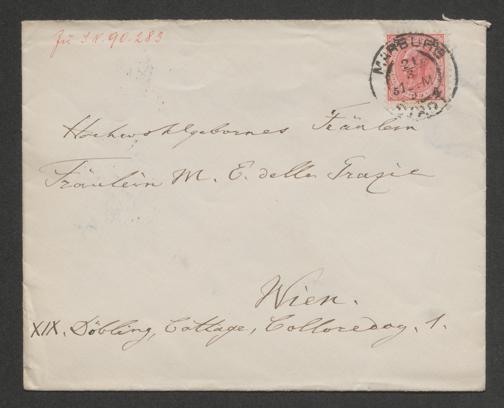 Zu I.N. 90.283
MARBURG
21
5
Hochwohlgebornes Fräulein
Fräulein M. E. delle Grazie
Wien.
XIX. Döbling, Cottage, Colloredog. 1.